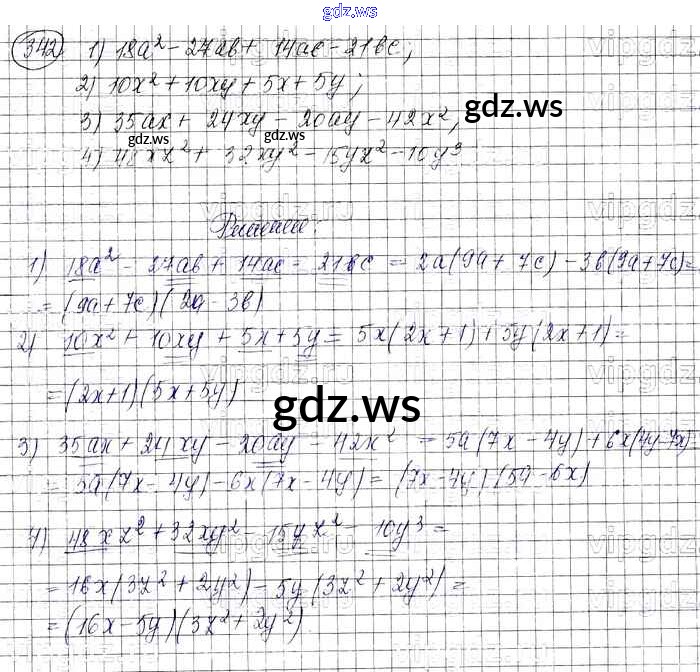 gdz.ws
342) 1) 18a² - 27ab + 14ac - 21bc;
2) 10x² + 10xy + 5x + 5y;
3) 35ax + 24xy - 20ay - 42x²;
4) 48xz² + 32xy² - 15yz² - 10y³
Решение:
1) 18a² - 27ab + 14ac - 21bc = 2a(9a + 7c) - 3b(9a + 7c) =
= (9a + 7c)(2a - 3b)
2) 10x² + 10xy + 5x + 5y = 5x(2x + 1) + 5y(2x + 1) =
= (2x+1)(5x+5y)
gdz.ws
3) 35ax + 24xy - 20ay - 42x² = 5a(7x - 4y) + 6x(4y - 7x) =
= 5a(7x - 4y) - 6x(7x - 4y) = (7x - 4y)(5a - 6x)
4) 48xz² + 32xy² - 15yz² - 10y³ =
= 16x(3z² + 2y²) - 5y(3z² + 2y²) =
= (16x - 5y)(3z² + 2y²)